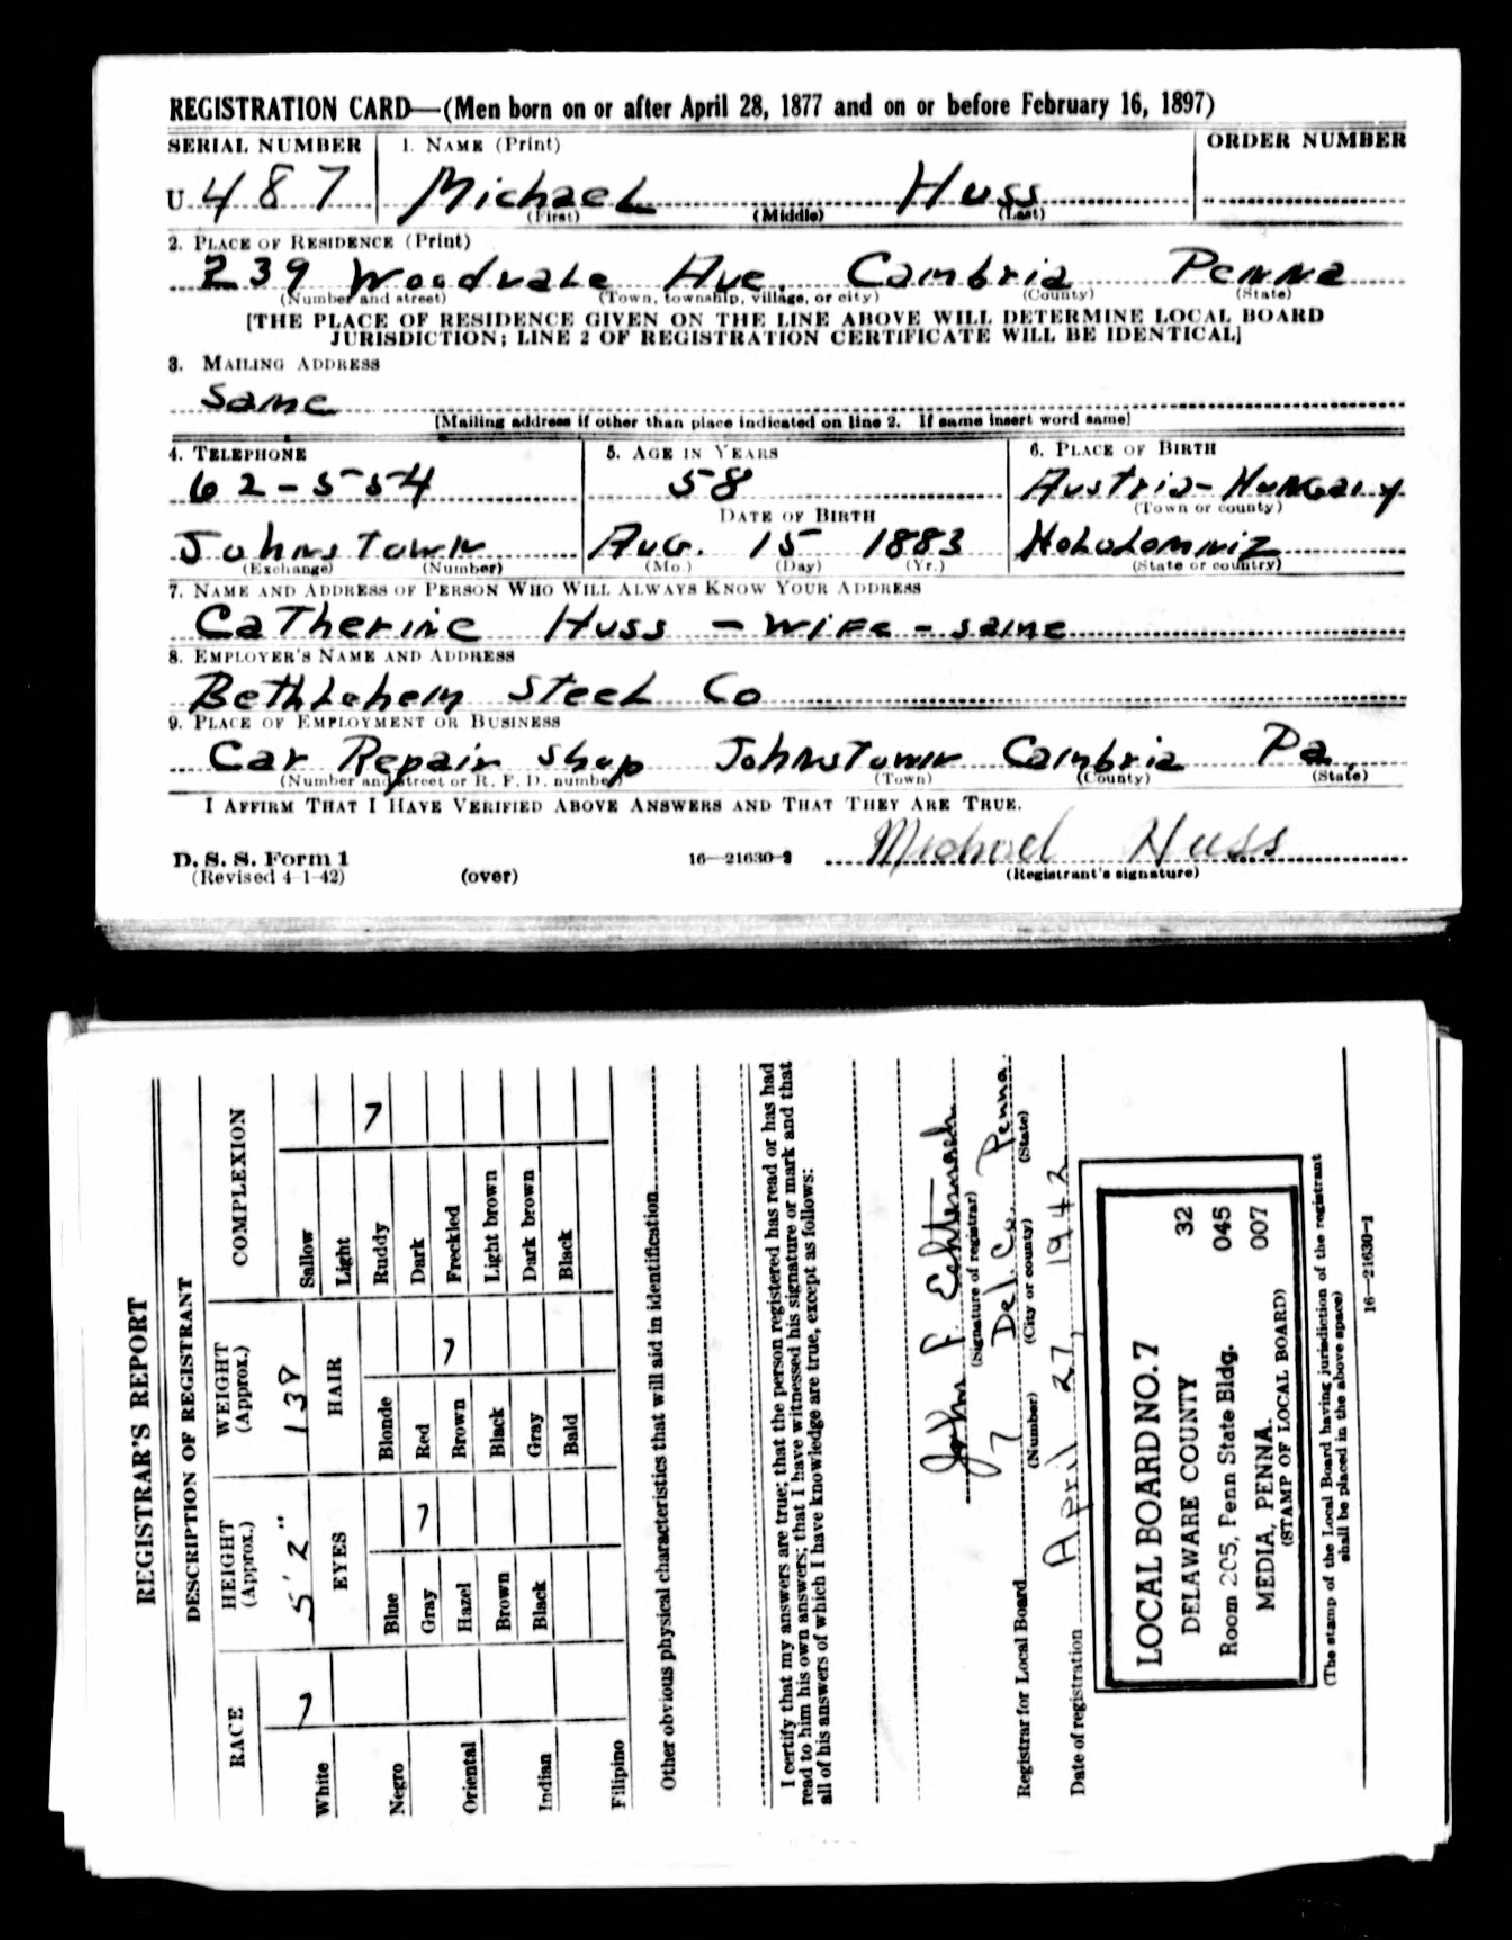 REGISTRATION CARD—(Men born on or after April 28, 1877 and on or before February 16, 1897)
SERIAL NUMBER 1. NAME (Print) ORDER NUMBER
U 487 Michael Huss
(First) (Middle) (Last)
2. PLACE OF RESIDENCE (Print)
239 Woodvale Ave. Cambria Penna
(Number and street) (Town, township, village, or city) (County) (State)
[THE PLACE OF RESIDENCE GIVEN ON THE LINE ABOVE WILL DETERMINE LOCAL BOARD
JURISDICTION; LINE 2 OF REGISTRATION CERTIFICATE WILL BE IDENTICAL]
3. MAILING ADDRESS
Same
[Mailing address if other than place indicated on line 2. If same insert word same]
4. TELEPHONE 5. AGE IN YEARS 6. PLACE OF BIRTH
62-554 58 Austria-Hungary
DATE OF BIRTH (Town or county)
Johnstown Aug. 15 1883
(Exchange) (Number) (Mo.) (Day) (Yr.) (State or country)
7. NAME AND ADDRESS OF PERSON WHO WILL ALWAYS KNOW YOUR ADDRESS
Catherine Huss - Wife - same
8. EMPLOYER'S NAME AND ADDRESS
Bethlehem Steel Co
9. PLACE OF EMPLOYMENT OR BUSINESS
Car Repair Shop Johnstown Cambria Pa.
(Number and street or R. F. D. number) (Town) (County) (State)
I AFFIRM THAT I HAVE VERIFIED ABOVE ANSWERS AND THAT THEY ARE TRUE.
Michael Huss
D. S. S. Form 1 16—21630-2
(Revised 4-1-42) (over) (Registrant's signature)
REGISTRAR'S REPORT
DESCRIPTION OF REGISTRANT
RACE HEIGHT (Approx.) WEIGHT (Approx.) COMPLEXION
5' 2" 138
White EYES HAIR Sallow
Light
Negro Blue Blonde Ruddy
Gray Red Dark
Oriental Hazel Brown Freckled
Brown Black Light brown
Indian Black Gray Dark brown
Bald Black
Filipino
Other obvious physical characteristics that will aid in identification
I certify that my answers are true; that the person registered has read or has had
read to him his own answers; that I have witnessed his signature or mark and that
all of his answers of which I have knowledge are true, except as follows:
John P. Echternach
(Signature of registrar)
Registrar for Local Board 7 Del. Co. Penna.
(Number) (City or county) (State)
Date of registration April 27, 1942
LOCAL BOARD NO. 7
DELAWARE COUNTY 32
Room 205, Penn State Bldg. 045
MEDIA, PENNA. 007
(STAMP OF LOCAL BOARD)
(The stamp of the Local Board having jurisdiction of the registrant
shall be placed in the above space)
16—21630-1